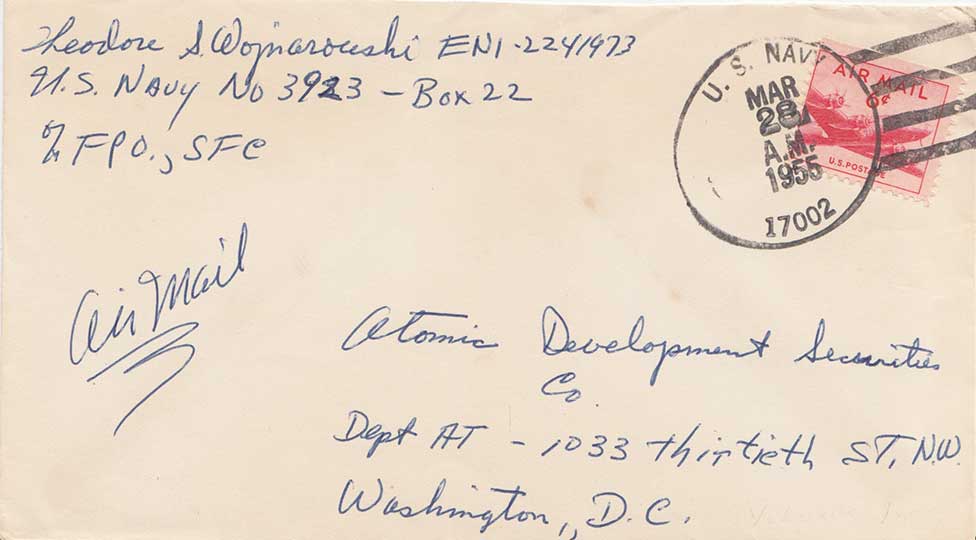 Theodore S. Wojnarowski EN1-2241973
U.S. Navy No 3923 - Box 22
℅ FPO., SFC
U. S. NAVY
MAR
28
A.M.
1955
17002
AIR MAIL
6¢
U.S. POSTAGE
Air Mail
Atomic Development Securities
Co.
Dept AT - 1033 thirtieth ST, N.W.
Washington, D.C.